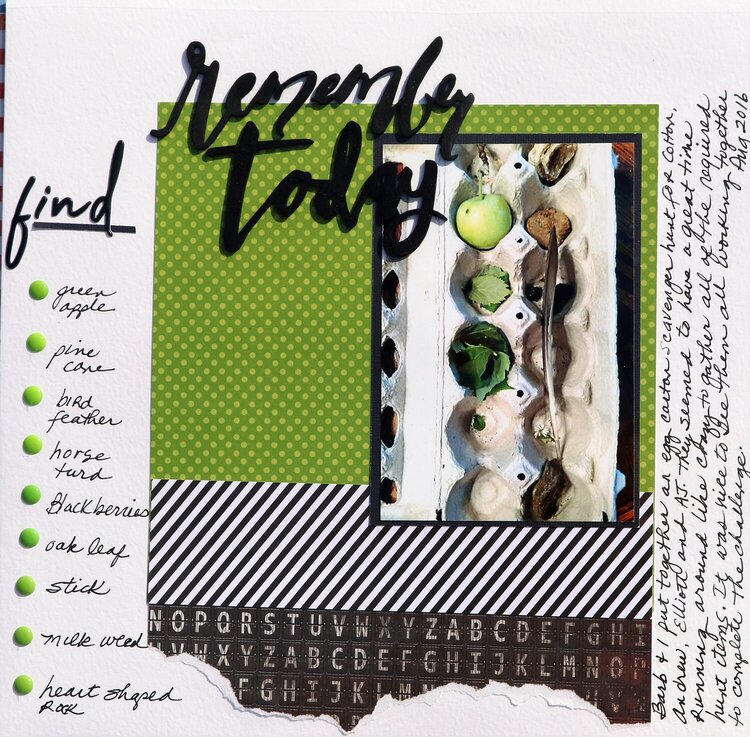 remember
today
find
green
apple
pine
cone
bird
feather
horse
turd
Blackberries
oak leaf
stick
milk weed
heart shaped
Rock
NOPQRSTUVWXYZABCDEFGHI
VWXYZABCDEFGHIJKLMNO
FGHIJKLMNOPQ
Barb & I put together an egg carton scavenger hunt for Colton,
Andrew, Elliott and AJ. They seemed to have a great time
running around like crazy to gather all of the required
hunt items. It was nice to see them all working together
to complete the challenge. Aug 2016